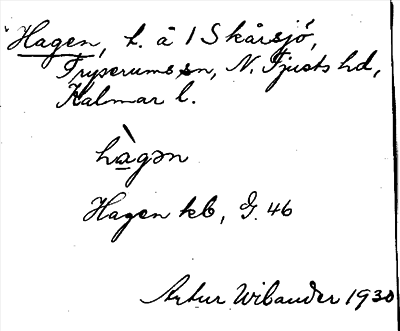 Hagen, t. å 1 Skårsjö,
Tryserums sn, N. Tjusts hd,
Kalmar l.
hàgən
Hagen kb, G. 46
Artur Wibander 1930